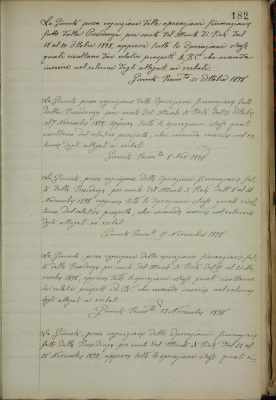 182
La Giunta, presa cognizione delle operazioni finanziarie
fatte dalla Presidenza per conto del Monte di Pietà dal
18 al 20 Ottobre 1898, approva tutte le operazioni stesse
quali risultano dai relativi prospetti che manda
inserirsi nel volume degli allegati ai verbali.
Giunta 21 Ottobre 1898
La Giunta, presa cognizione delle operazioni finanziarie fatte
dalla Presidenza per conto del Monte di Pietà dal
Novembre 1898, approva tutte le operazioni stesse quali
risultano dal relativo prospetto, che manda inserirsi nel vo-
lume degli allegati ai verbali.
Giunta 1898
La Giunta, presa cognizione delle operazioni finanziarie fat-
te dalla Presidenza per conto del Monte di Pietà dal
Novembre 1898, approva tutte le operazioni stesse quali risul-
tano dal relativo prospetto, che manda inserirsi nel volume
degli allegati ai verbali.
Giunta Novembre 1898
La Giunta, presa cognizione delle operazioni finanziarie fat-
te dalla Presidenza per conto del Monte di Pietà dal
1898, approva tutte le operazioni stesse quali risultano
dai relativi prospetti che manda inserirsi nel volume
degli allegati ai verbali.
Giunta Novembre 1898
La Giunta, presa cognizione delle operazioni finanziarie
fatte dalla Presidenza per conto del Monte di Pietà dal
Novembre 1898, approva tutte le operazioni stesse quali ri-